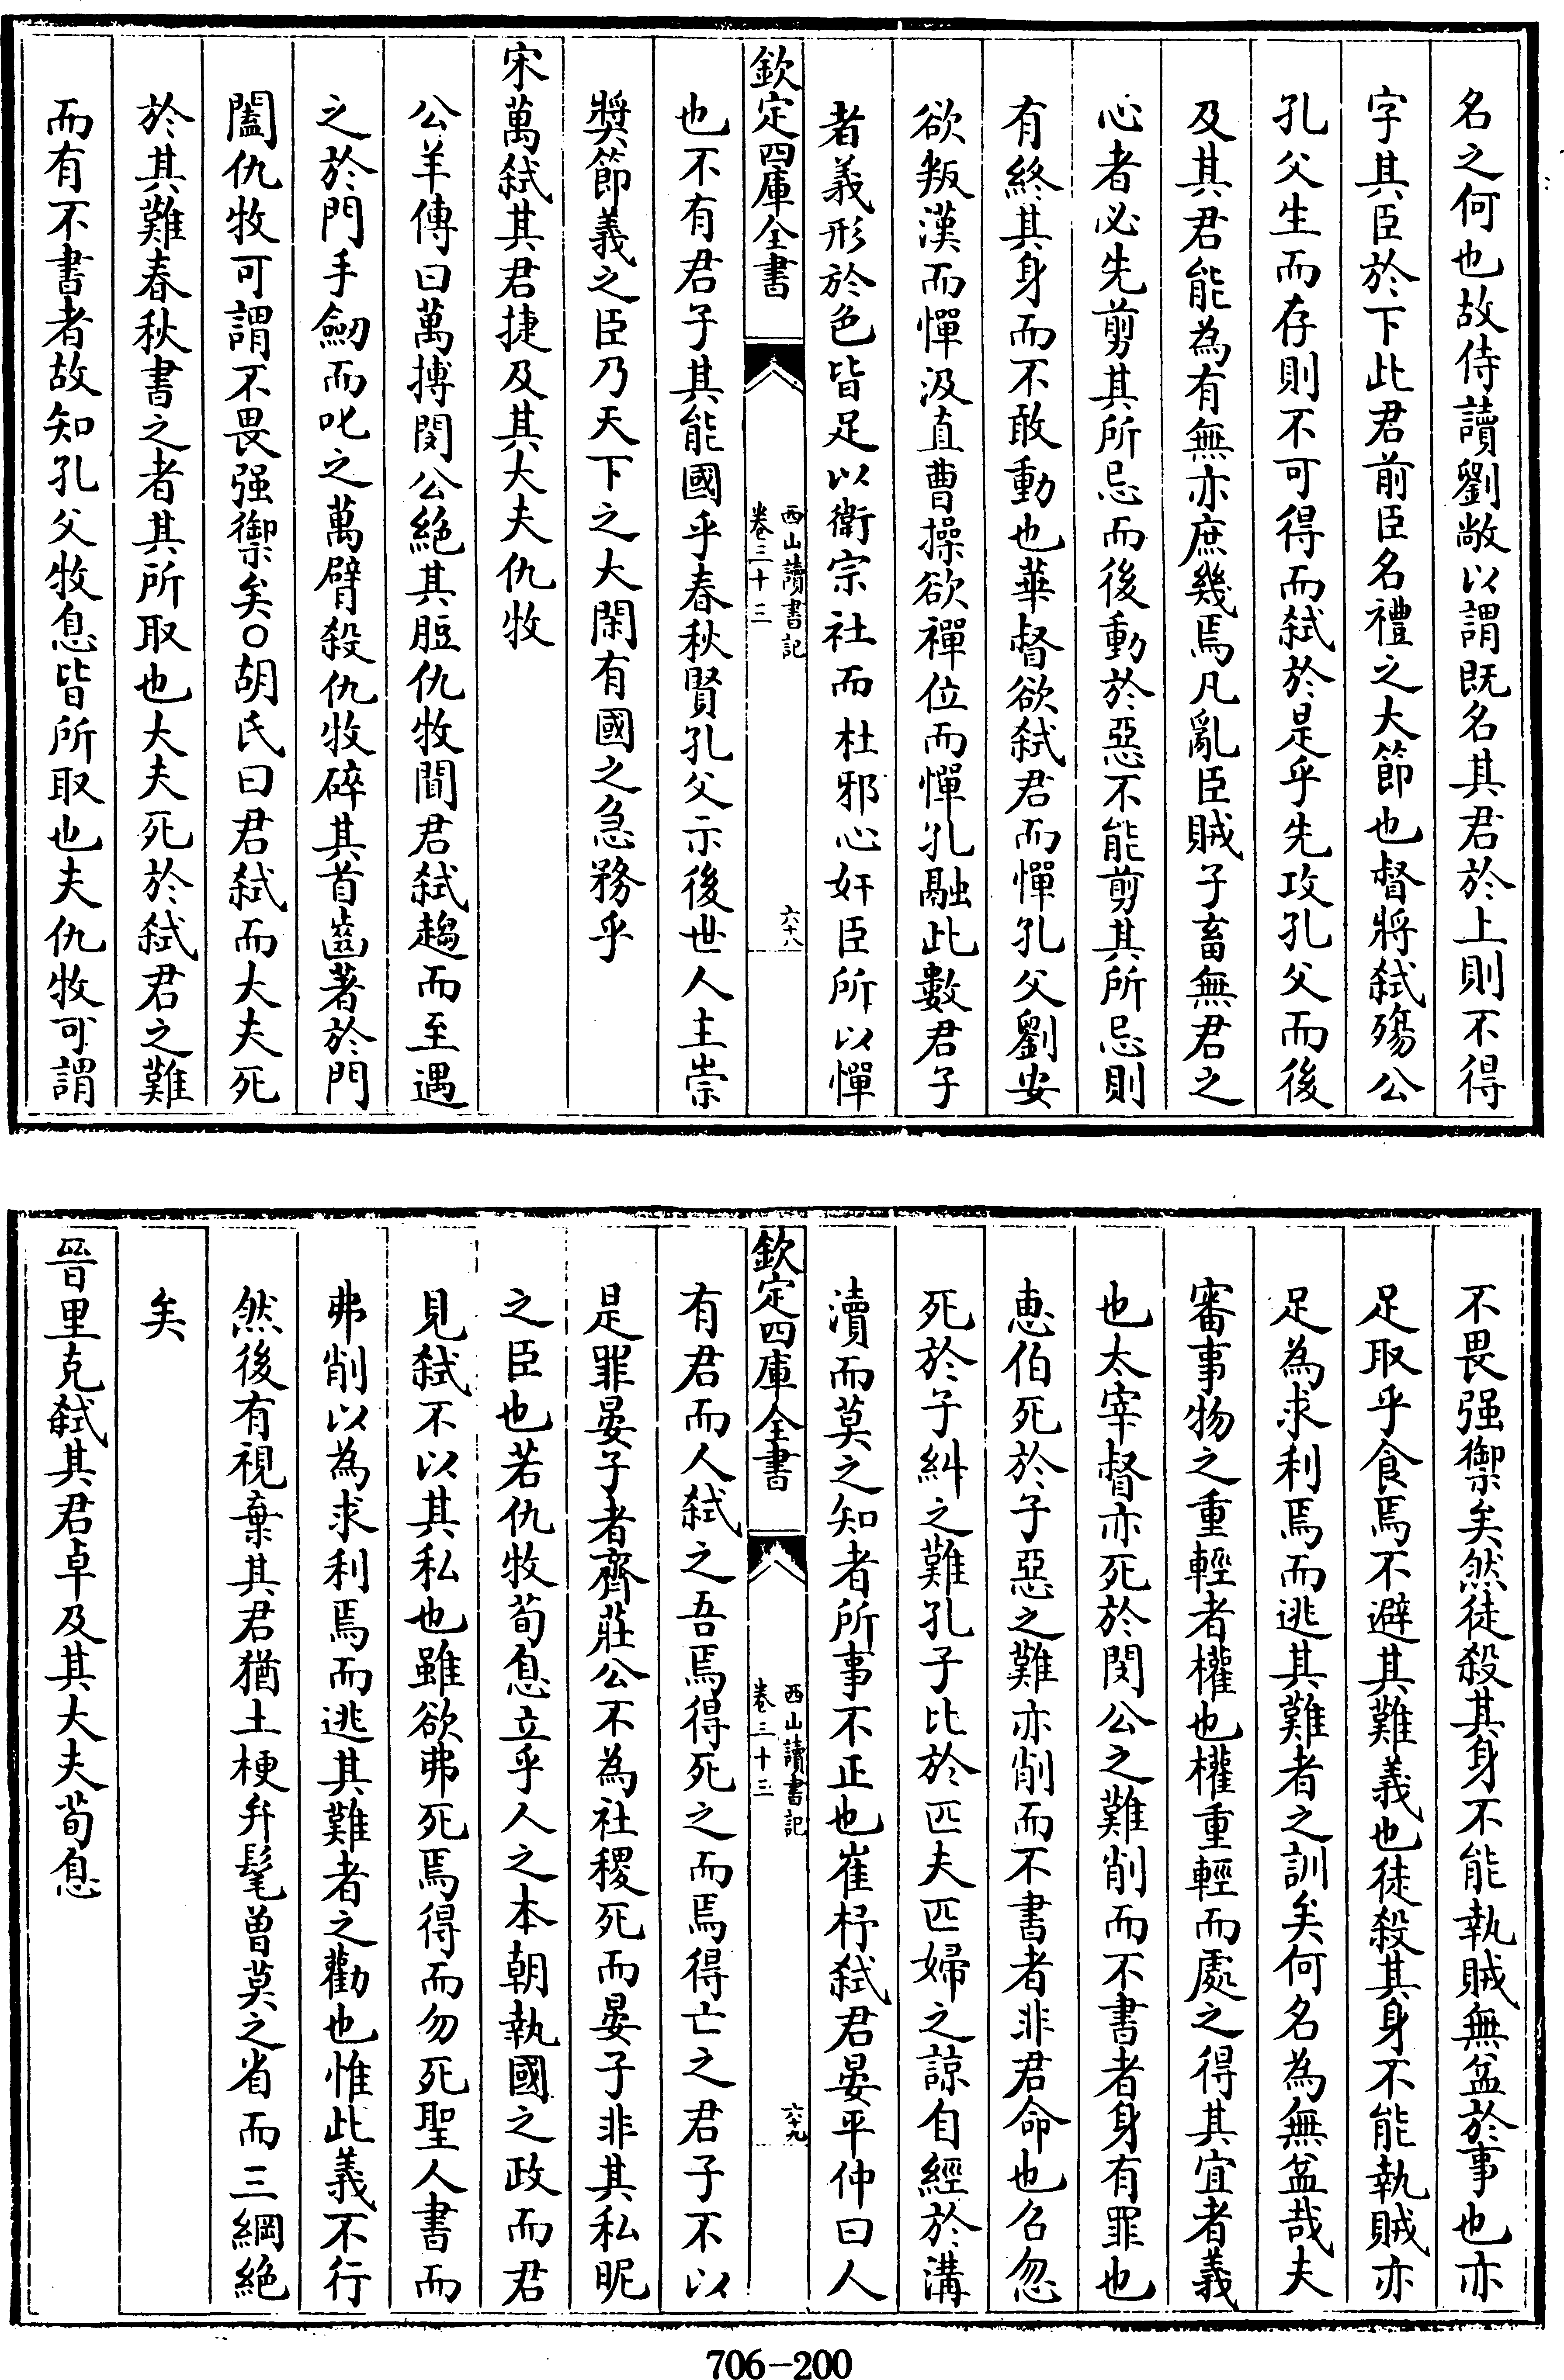 名之何也故侍讀劉敞以謂既名其君於上則不得
字其臣於下此君前臣名禮之大節也督將弑殤公
孔父生而存則不可得而弑於是乎先攻孔父而後
及其君能為有無亦庶幾焉凡亂臣賊子畜無君之
心者必先剪其所忌而後動於惡不能剪其所忌則
有終其身而不敢動也華督欲弑君而憚孔父劉安
欲叛漢而憚汲直曹操欲禪位而憚孔融此數君子
者義形於色皆足以衛宗社而杜邪心奸臣所以憚
欽定四庫全書
西山讀書記
卷三十三
六十八
也不有君子其能國乎春秋賢孔父示後世人主崇
奬節義之臣乃天下之大閑有國之急務乎
宋萬弑其君捷及其大夫仇牧
公羊傳曰萬搏閔公絶其脰仇牧聞君弑趨而至遇
之於門手劒而叱之萬臂殺仇牧碎其首齒著於門
闔仇牧可謂不畏强禦矣○胡氏曰君弑而大夫死
於其難春秋書之者其所取也大夫死於弑君之難
而有不書者故知孔父牧息皆所取也夫仇牧可謂
不畏强禦矣然徒殺其身不能執賊無益於事也亦
足取乎食焉不避其難義也徒殺其身不能執賊亦
足為求利焉而逃其難者之訓矣何名為無益哉夫
審事物之重輕者權也權重輕而處之得其宜者義
也太宰督亦死於閔公之難削而不書者身有罪也
惠伯死於子惡之難亦削而不書者非君命也召忽
死於子糾之難孔子比於匹夫匹婦之諒自經於溝
瀆而莫之知者所事不正也崔杼弑君晏平仲曰人
欽定四庫全書
西山讀書記
卷三十三
六十九
有君而人弑之吾焉得死之而焉得亡之君子不以
是罪晏子者齊莊公不為社稷死而晏子非其私昵
之臣也若仇牧荀息立乎人之本朝執國之政而君
見弑不以其私也雖欲弗死焉得而勿死聖人書而
弗削以為求利焉而逃其難者之勸也惟此義不行
然後有視棄其君猶土梗弁髦曾莫之省而三綱絶
矣
晉里克弑其君卓及其大夫荀息
706-200